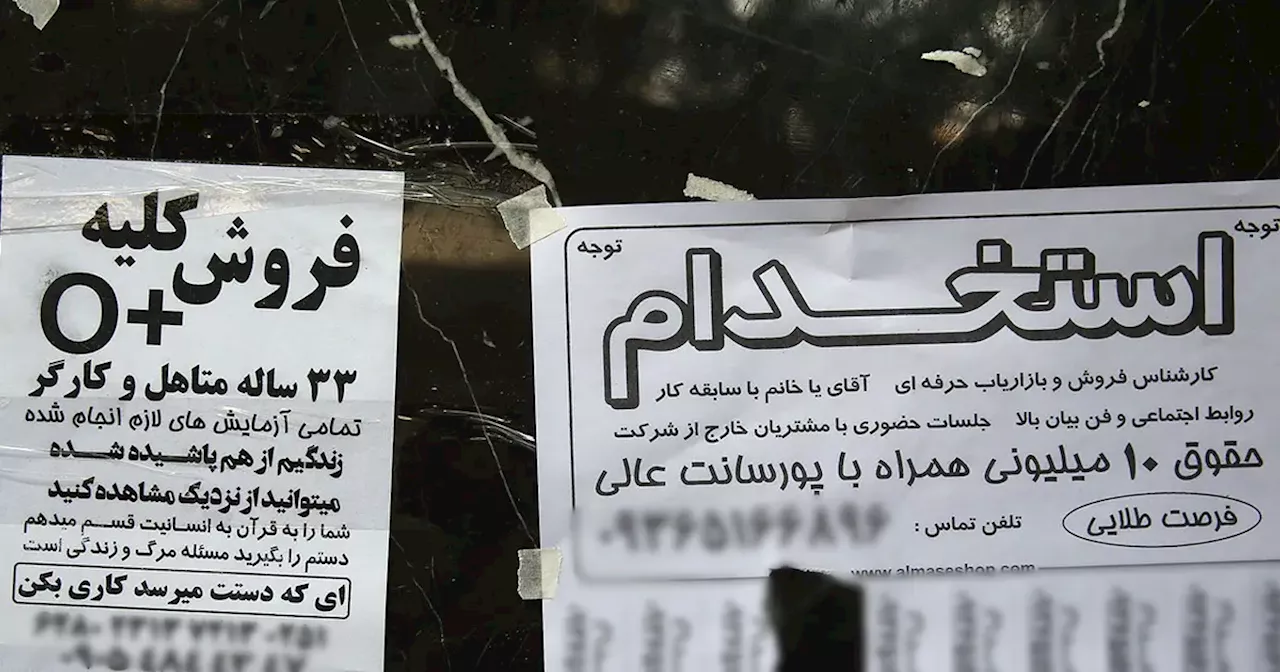 فروش کلیه
O+
۳۳ ساله متاهل و کارگر
تمامی آزمایش های لازم انجام شده
زندگیم از هم پاشیده شده
میتوانید از نزدیک مشاهده کنید
شما را به قرآن به انسانیت قسم میدهم
دستم را بگیرید مسئله مرگ و زندگی است
ای که دستت میرسد کاری بکن
توجه
توجه
استخدام
کارشناس فروش و بازاریاب حرفه ای آقای یا خانم با سابقه کار
روابط اجتماعی و فن بیان بالا جلسات حضوری با مشتریان خارج از شرکت
حقوق ۱۰ میلیونی همراه با پورسانت عالی
فرصت طلایی
تلفن تماس :
www.almaseshop.com